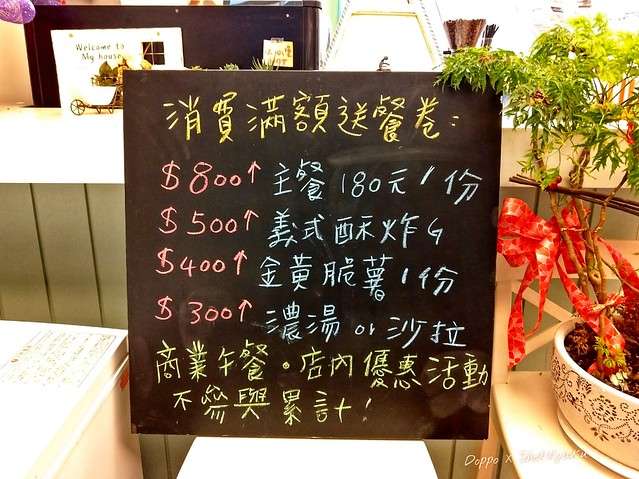 Welcome to
My house
消費滿額送餐卷:
$800↑ 主餐180元1份
$500↑ 義式酥炸G
$400↑ 金黃脆薯1份
$300↑ 濃湯 or 沙拉
商業午餐。店內優惠活動
不參與累計!
Doppo X